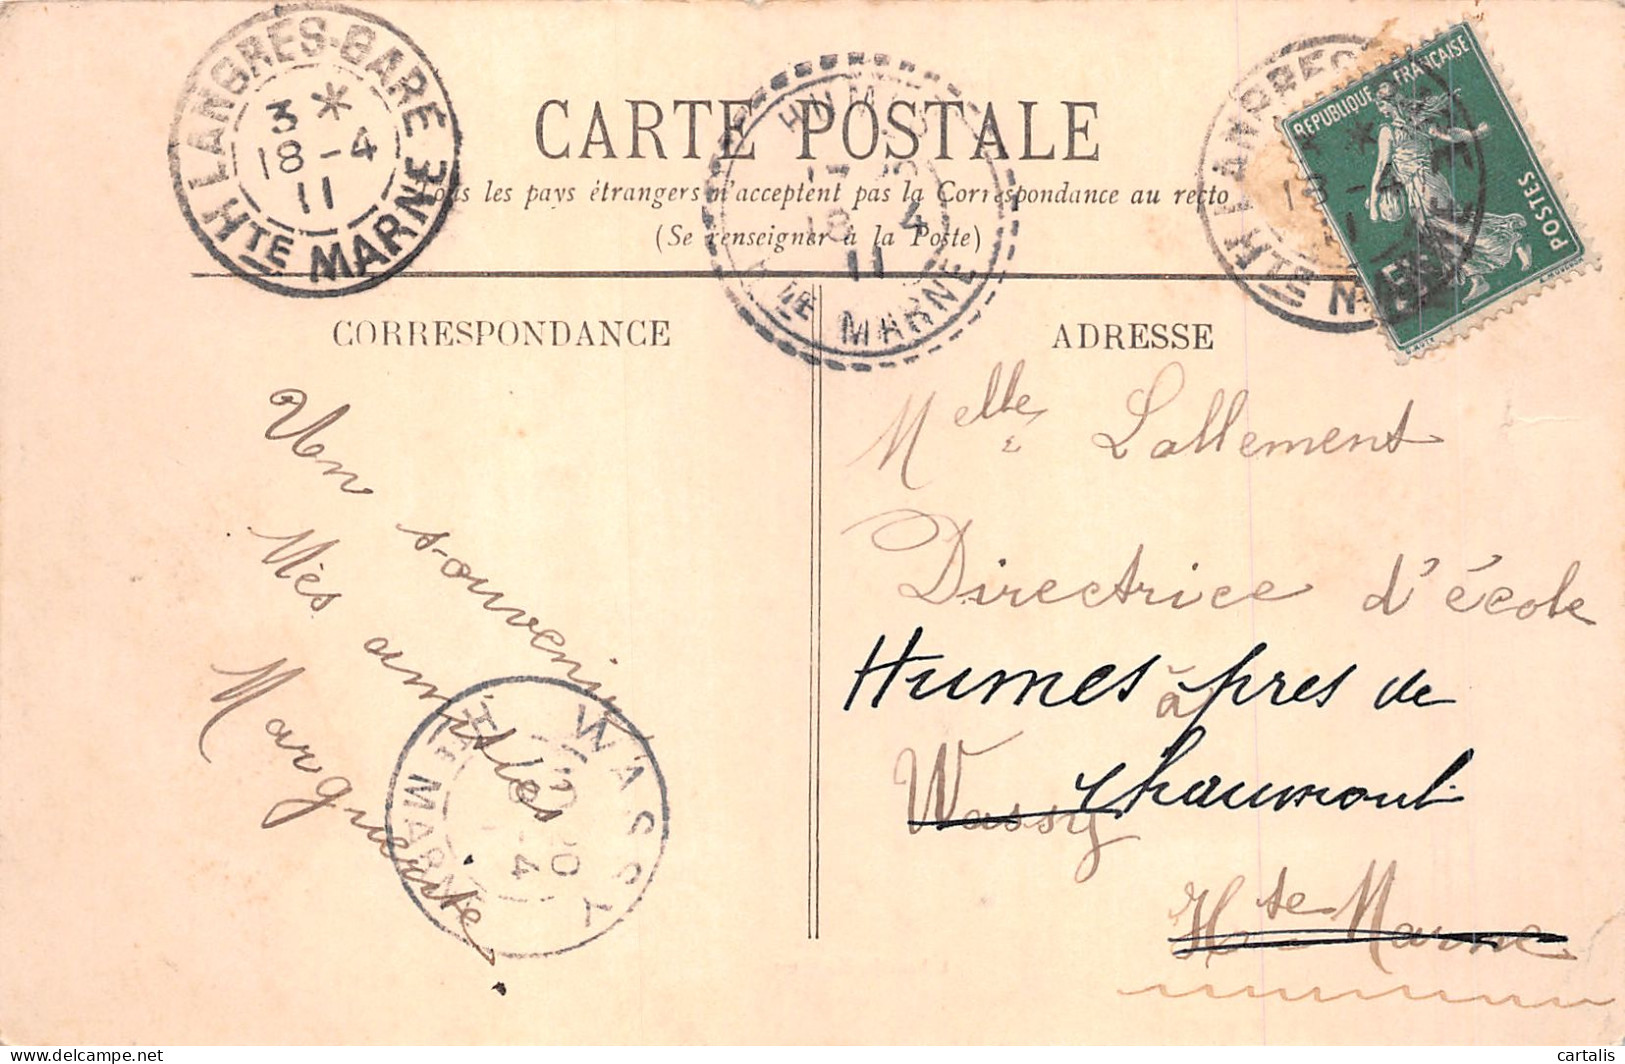 LANGRES-GARE
3 *
18-4
11
HTE MARNE
CARTE POSTALE
Tous les pays étrangers n'acceptent pas la Correspondance au recto
(Se renseigner à la Poste)
HUMES
18 4
11
HTE MARNE
LANGRES-GARE
*
18-4
11
HTE MARNE
REPUBLIQUE FRANÇAISE
POSTES
CORRESPONDANCE
ADRESSE
Un souvenir
Mes amitiés
Marguerite.
WASSY
20
4
HTE MARNE
Melle Lallement
Directrice d'école
à
Humes pres de
Chaumont
Wassy
Hte Marne
delcampe.net
cartalis